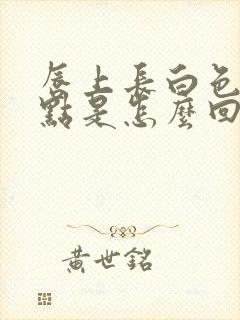 唇上長白色
點是怎麼回
黃世銘